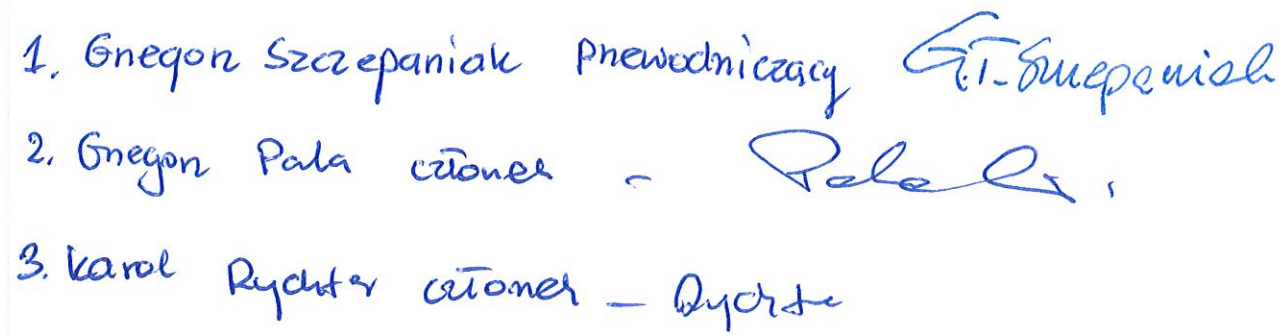 1. Grzegorz Szczepaniak Przewodniczący G.T. Szczepaniak
2. Grzegorz Pala członek -
3. Karol Rychter członek - Rychte